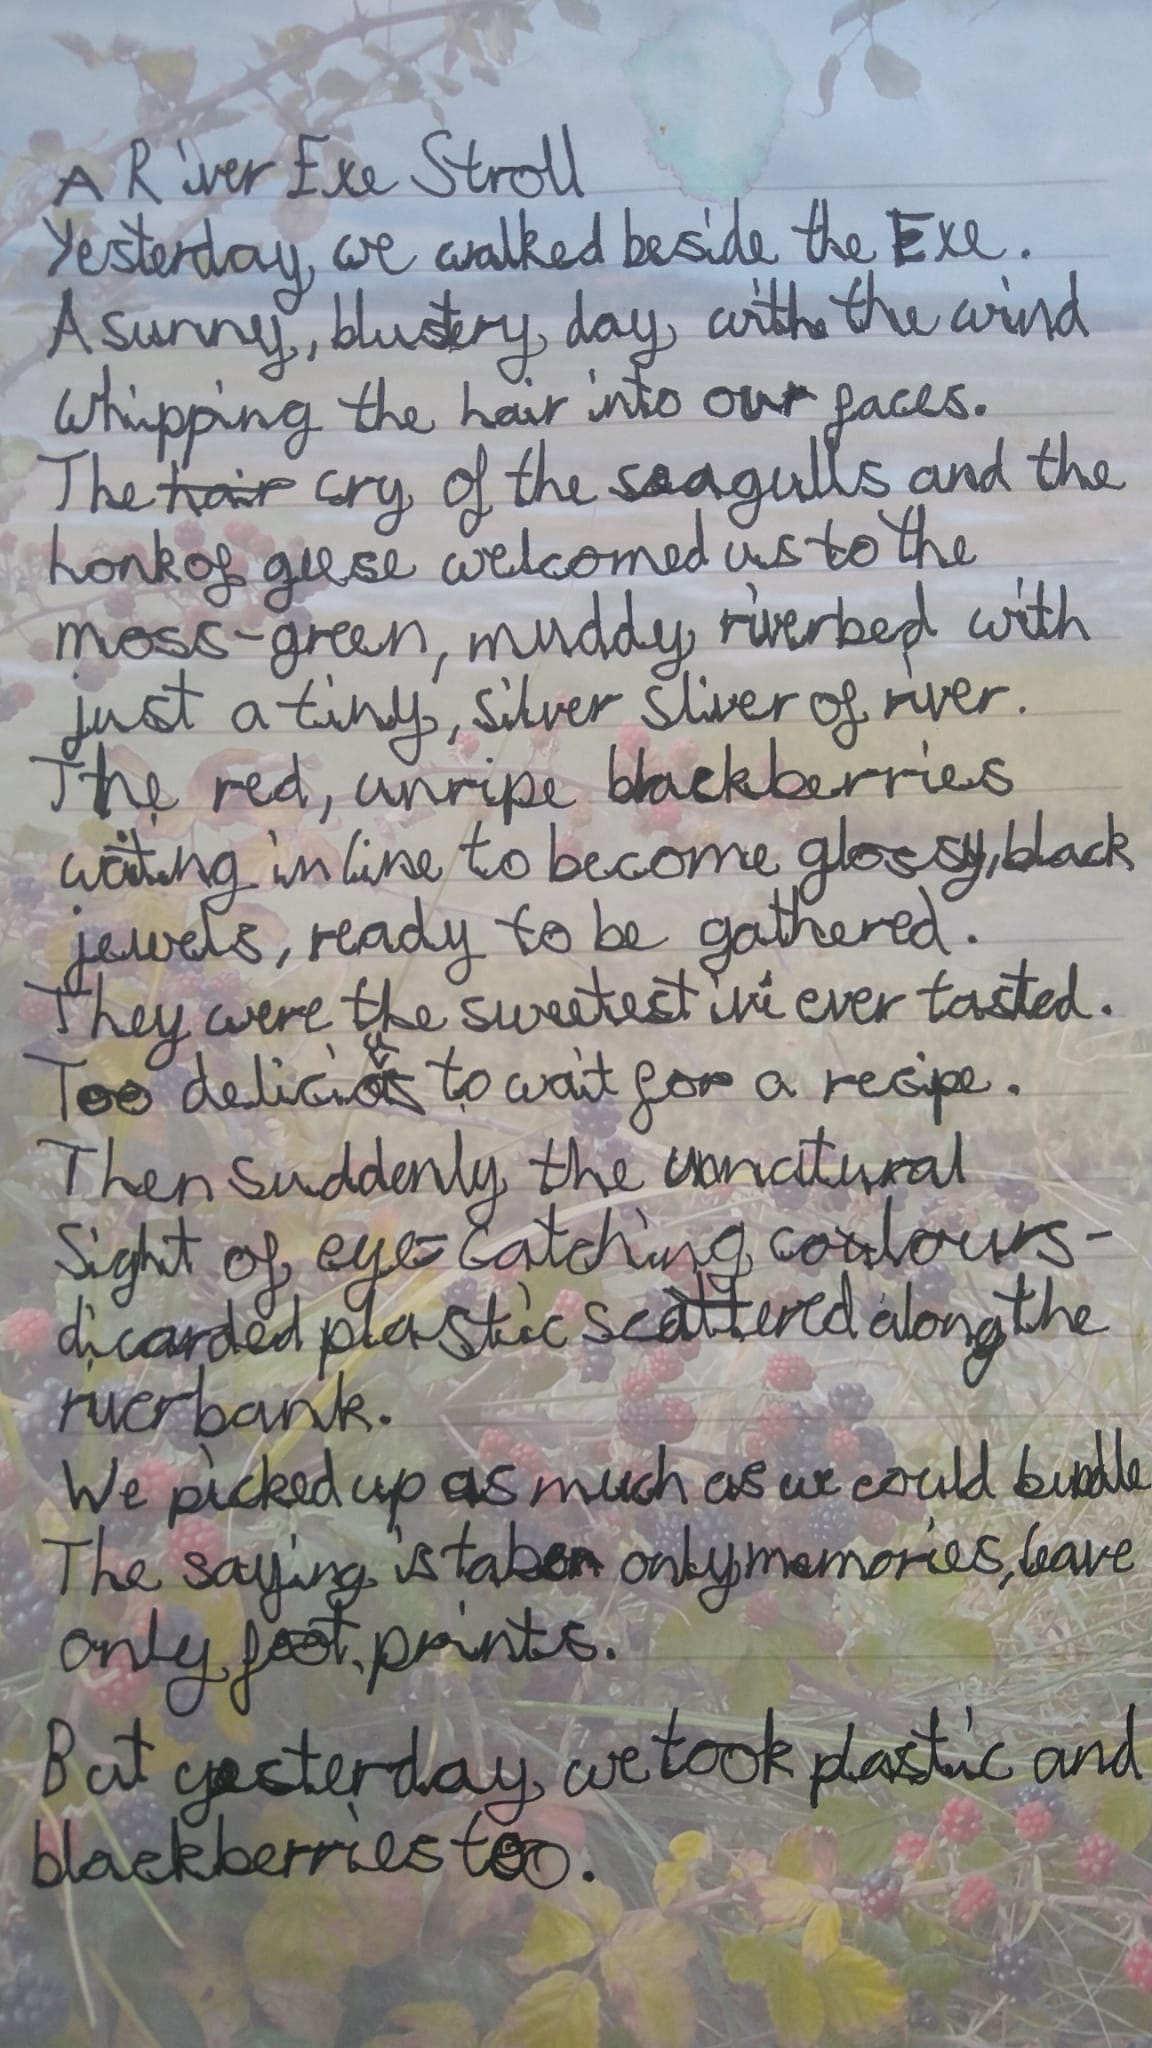 A River Exe Stroll
Yesterday we walked beside the Exe.
A sunny, blustery day with the wind
whipping the hair into our faces.
The hair cry of the seagulls and the
honk of geese welcomed us to the
moss-green, muddy riverbed with
just a tiny, silver sliver of river.
The red, unripe blackberries
waiting in line to become glossy, black
jewels, ready to be gathered.
They were the sweetest ive ever tasted.
Too delicious to wait for a recipe.
Then suddenly the unnatural
Sight of eye-catching coulours-
dicarded plastic scattered along the
riverbank.
We picked up as much as we could bundle
The saying is only memories, leave
only foot prints.
But yesterday we took plastic and
blackberries too.